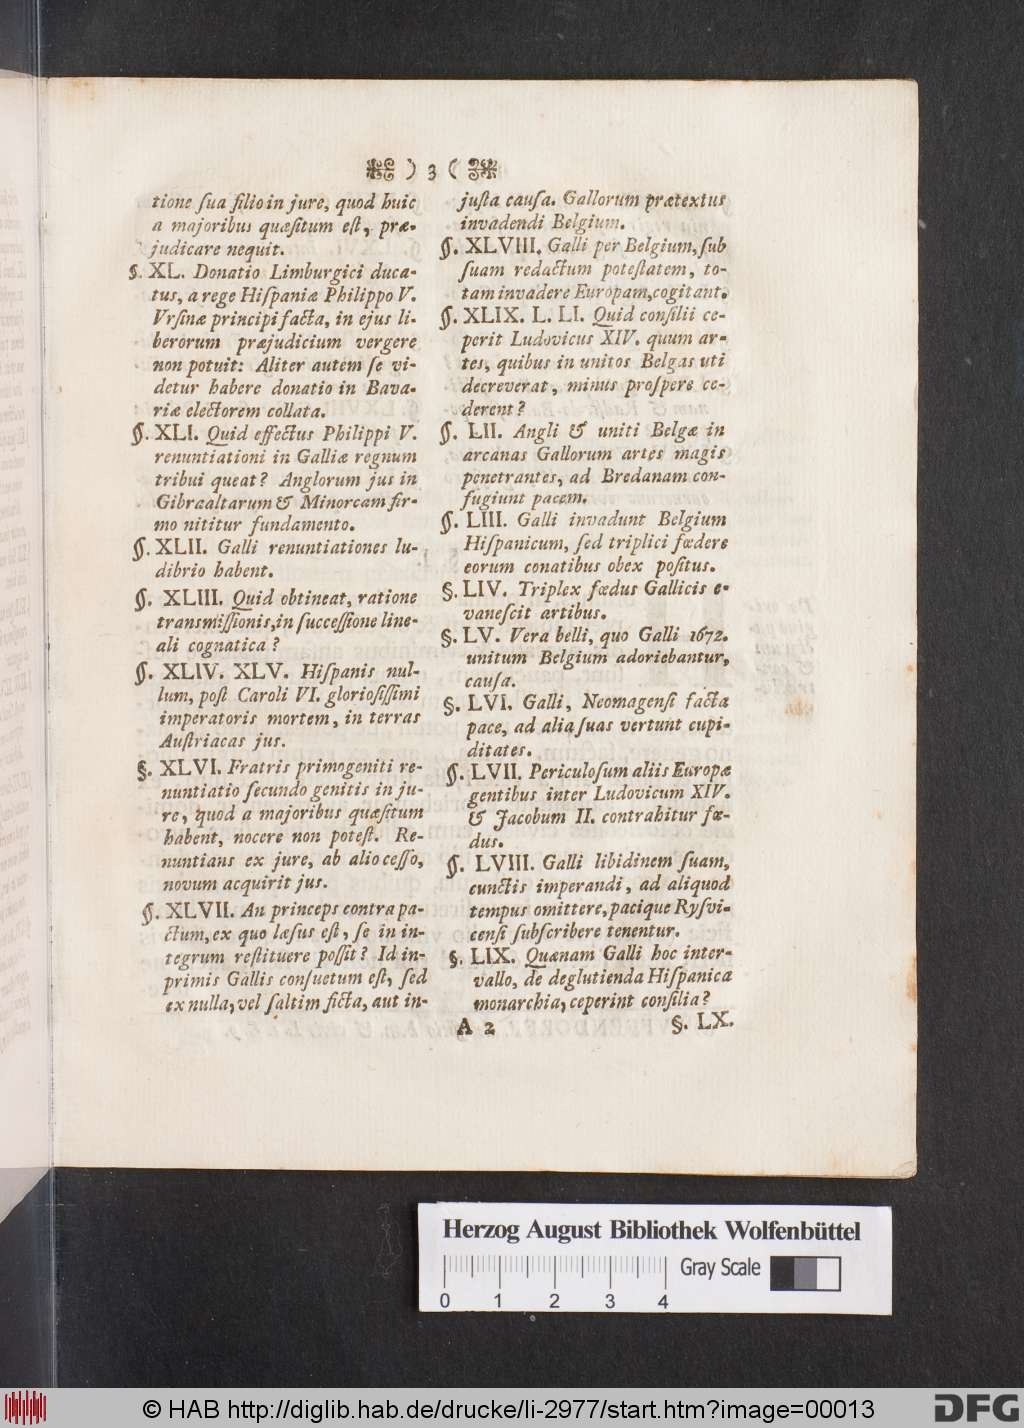 ) 3 (
tione ſua filio in jure, quod huic
a majoribus quæſitum eſt, præ-
judicare nequit.
§. XL. Donatio Limburgici duca-
tus, a rege Hiſpaniæ Philippo V.
Vrſinæ principi facta, in ejus li-
berorum præjudicium vergere
non potuit: Aliter autem ſe vi-
detur habere donatio in Bava-
riæ electorem collata.
§. XLI. Quid effectus Philippi V.
renuntiationi in Galliæ regnum
tribui queat? Anglorum jus in
Gibraaltarum & Minorcam fir-
mo nititur fundamento.
§. XLII. Galli renuntiationes lu-
dibrio habent.
§. XLIII. Quid obtineat, ratione
transmiſſionis, in ſucceſſione line-
ali cognatica?
§. XLIV. XLV. Hiſpanis nul-
lum, poſt Caroli VI. glorioſiſſimi
imperatoris mortem, in terras
Auſtriacas jus.
§. XLVI. Fratris primogeniti re-
nuntiatio ſecundo genitis in ju-
re, quod a majoribus quæſitum
habent, nocere non poteſt. Re-
nuntians ex jure, ab alio ceſſo,
novum acquirit jus.
§. XLVII. An princeps contra pa-
ctum, ex quo læſus eſt, ſe in in-
tegrum reſtituere poſſit? Id in-
primis Gallis conſuetum eſt, ſed
ex nulla, vel ſaltim ficta, aut in-
juſta cauſa. Gallorum prætextus
invadendi Belgium.
§. XLVIII. Galli per Belgium, ſub
ſuam redactum poteſtatem, to-
tam invadere Europam, cogitant.
§. XLIX. L. LI. Quid conſilii ce-
perit Ludovicus XIV. quum ar-
tes, quibus in unitos Belgas uti
decreverat, minus proſpere ce-
derent?
§. LII. Angli & uniti Belgæ in
arcanas Gallorum artes magis
penetrantes, ad Bredanam con-
fugiunt pacem.
§. LIII. Galli invadunt Belgium
Hiſpanicum, ſed triplici fœdere
eorum conatibus obex poſitus.
§. LIV. Triplex fœdus Gallicis e-
vaneſcit artibus.
§. LV. Vera belli, quo Galli 1672.
unitum Belgium adoriebantur,
cauſa.
§. LVI. Galli, Neomagenſi facta
pace, ad alia ſuas vertunt cupi-
ditates.
§. LVII. Periculoſum aliis Europæ
gentibus inter Ludovicum XIV.
& Jacobum II. contrahitur fœ-
dus.
§. LVIII. Galli libidinem ſuam,
cunctis imperandi, ad aliquod
tempus omittere, pacique Ryſvi-
cenſi ſubſcribere tenentur.
§. LIX. Quænam Galli hoc inter-
vallo, de deglutienda Hiſpanica
monarchia, ceperint conſilia?
A 2 §. LX.
Herzog August Bibliothek Wolfenbüttel
Gray Scale
0 1 2 3 4
© HAB http://diglib.hab.de/drucke/li-2977/start.htm?image=00013
DFG